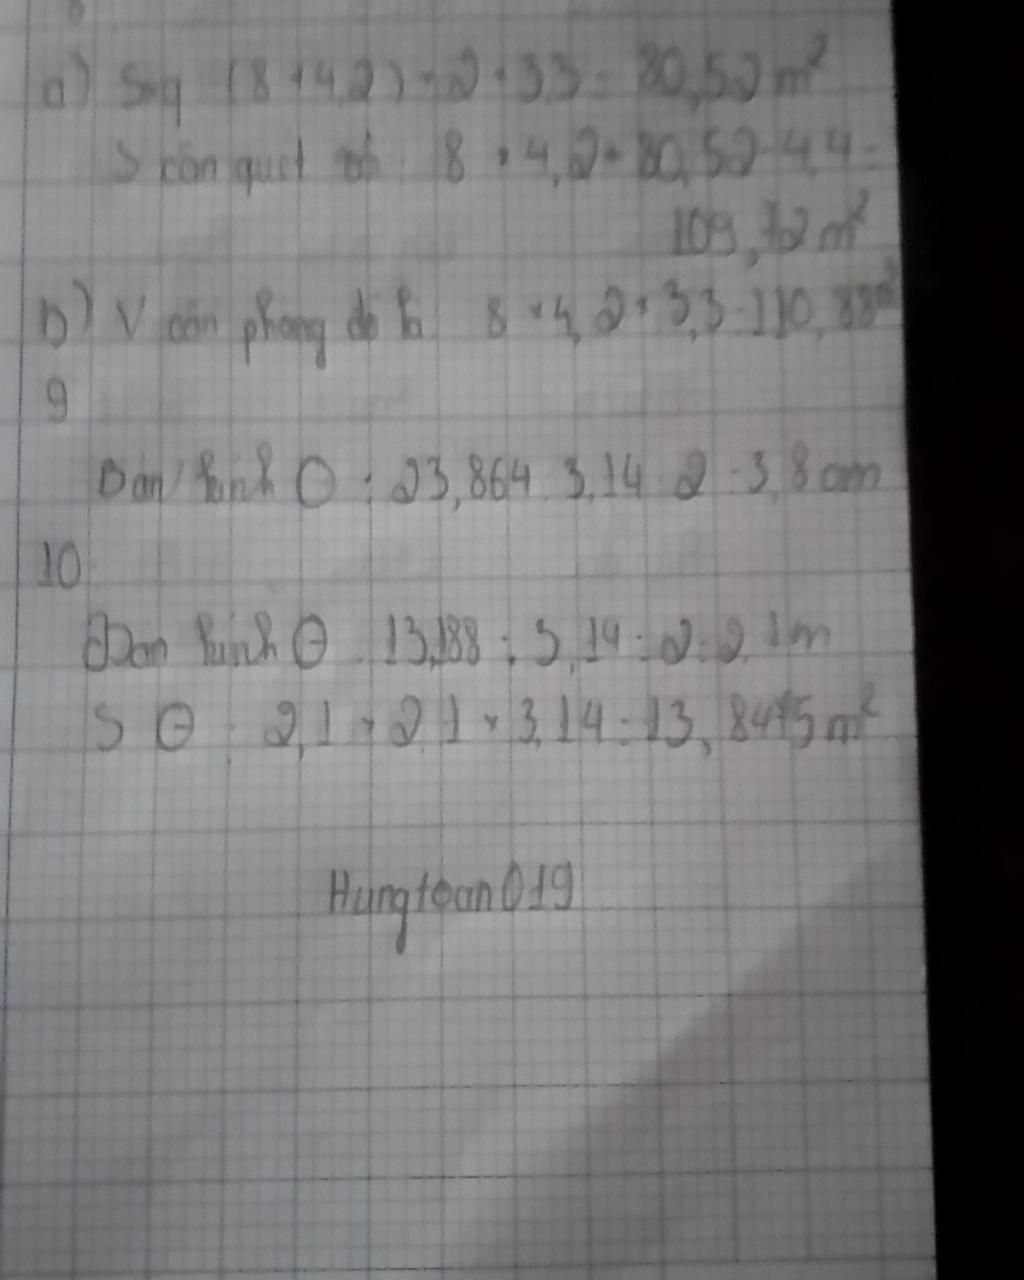 8
a) Sxq (8 + 4,2) × 2 × 3,3 = 80,52 m²
S cần quét là 8 × 4,2 + 80,52 - 4,4 =
109,72 m²
b) V căn phòng đó là 8 × 4,2 × 3,3 = 110,88m³
9
Bán kính O : 23,864 : 3,14 : 2 = 3,8 cm
10
Bán kính O 13,188 : 3,14 : 2 = 2,1m
S O 2,1 × 2,1 × 3,14 = 13,8475 m²
Hungtoan019